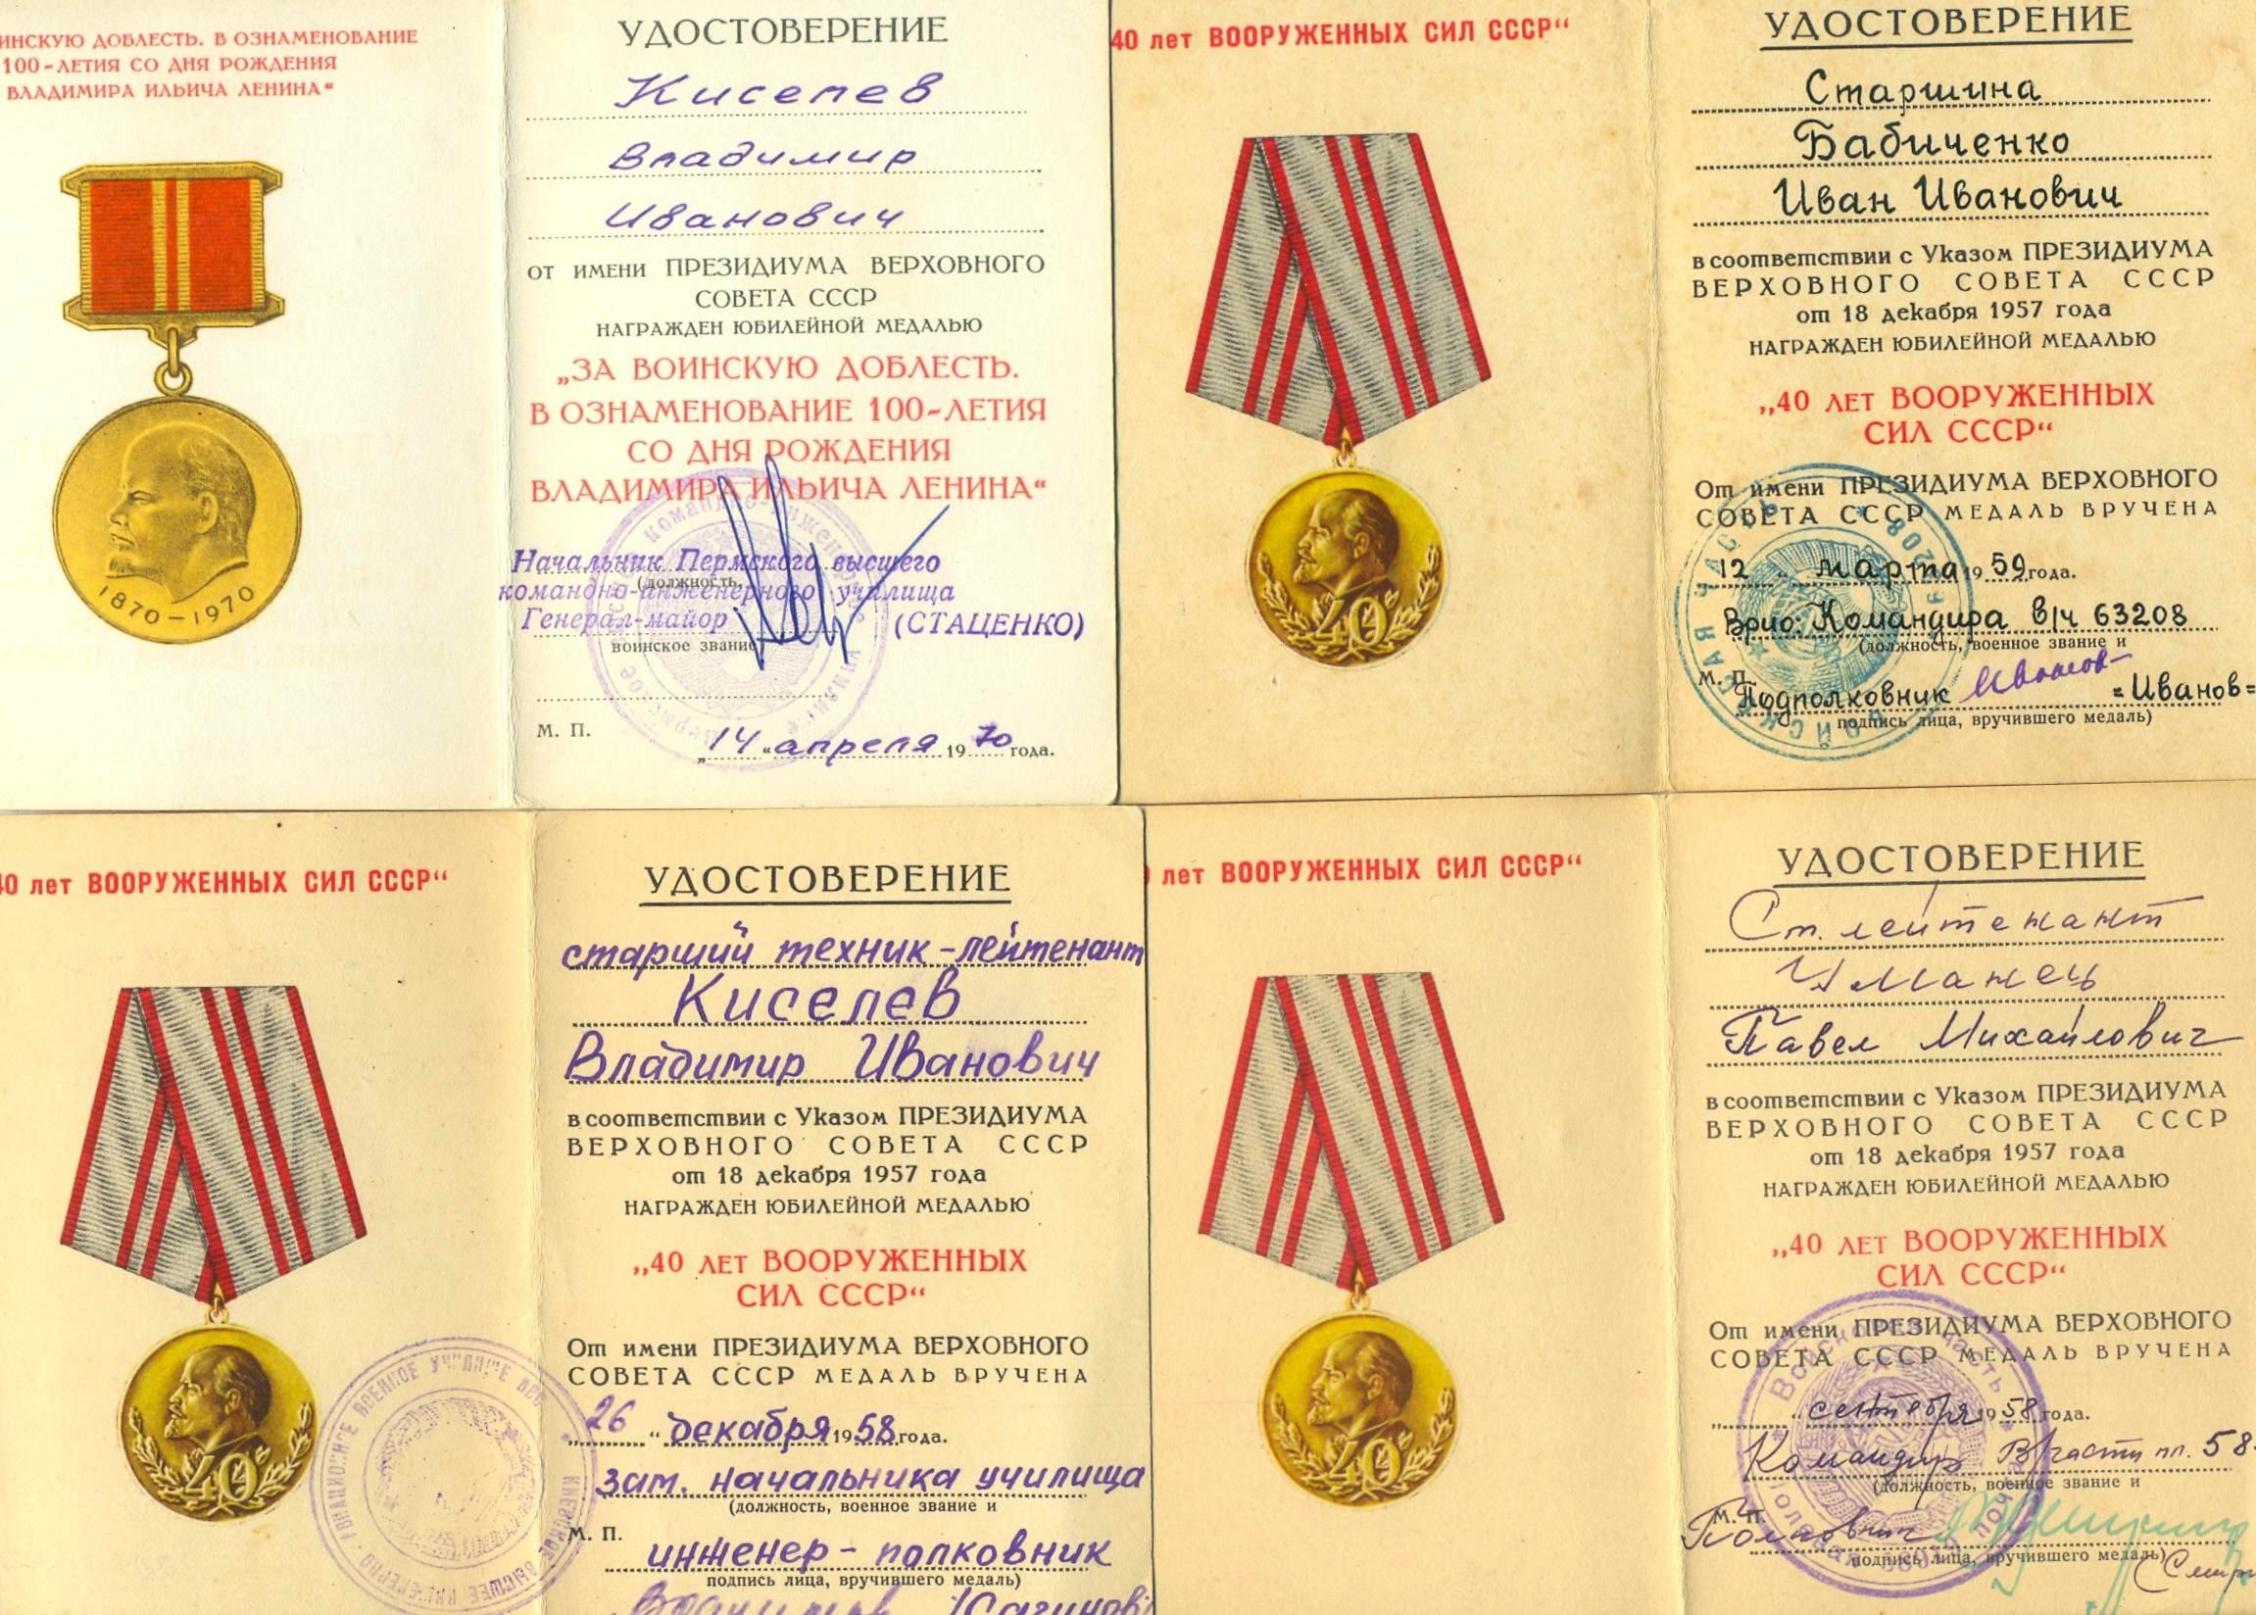 ИНСКУЮ ДОБЛЕСТЬ. В ОЗНАМЕНОВАНИЕ
100-ЛЕТИЯ СО ДНЯ РОЖДЕНИЯ
ВЛАДИМИРА ИЛЬИЧА ЛЕНИНА“
1870-1970
УДОСТОВЕРЕНИЕ
Киселев
Владимир
Иванович
ОТ ИМЕНИ ПРЕЗИДИУМА ВЕРХОВНОГО
СОВЕТА СССР
НАГРАЖДЕН ЮБИЛЕЙНОЙ МЕДАЛЬЮ
„ЗА ВОИНСКУЮ ДОБЛЕСТЬ.
В ОЗНАМЕНОВАНИЕ 100-ЛЕТИЯ
СО ДНЯ РОЖДЕНИЯ
ВЛАДИМИРА ИЛЬИЧА ЛЕНИНА“
Начальник Пермского высшего
(должность,
командно-инженерного училища
Генерал-майор (СТАЦЕНКО)
воинское звание
М. П.
„14“ апреля 1970 года.
40 лет ВООРУЖЕННЫХ СИЛ СССР“
40
УДОСТОВЕРЕНИЕ
Старшина
Бабиченко
Иван Иванович
в соответствии с Указом ПРЕЗИДИУМА
ВЕРХОВНОГО СОВЕТА СССР
от 18 декабря 1957 года
НАГРАЖДЕН ЮБИЛЕЙНОЙ МЕДАЛЬЮ
„40 ЛЕТ ВООРУЖЕННЫХ
СИЛ СССР“
От имени ПРЕЗИДИУМА ВЕРХОВНОГО
СОВЕТА СССР МЕДАЛЬ ВРУЧЕНА
12 марта 1959 года.
Врио: Командира в/ч 63208
(должность, военное звание и
М. П.
Подполковник Иванов =Иванов=
подпись лица, вручившего медаль)
40 лет ВООРУЖЕННЫХ СИЛ СССР“
40
УДОСТОВЕРЕНИЕ
старший техник-лейтенант
Киселев
Владимир Иванович
в соответствии с Указом ПРЕЗИДИУМА
ВЕРХОВНОГО СОВЕТА СССР
от 18 декабря 1957 года
НАГРАЖДЕН ЮБИЛЕЙНОЙ МЕДАЛЬЮ
„40 ЛЕТ ВООРУЖЕННЫХ
СИЛ СССР“
От имени ПРЕЗИДИУМА ВЕРХОВНОГО
СОВЕТА СССР МЕДАЛЬ ВРУЧЕНА
„26“ декабря 1958 года.
зам. начальника училища
(должность, военное звание и
М. П.
инженер-полковник
подпись лица, вручившего медаль)
лет ВООРУЖЕННЫХ СИЛ СССР“
40
УДОСТОВЕРЕНИЕ
Ст. лейтенант
Уманец
Павел Михайлович
в соответствии с Указом ПРЕЗИДИУМА
ВЕРХОВНОГО СОВЕТА СССР
от 18 декабря 1957 года
НАГРАЖДЕН ЮБИЛЕЙНОЙ МЕДАЛЬЮ
„40 ЛЕТ ВООРУЖЕННЫХ
СИЛ СССР“
От имени ПРЕЗИДИУМА ВЕРХОВНОГО
СОВЕТА СССР МЕДАЛЬ ВРУЧЕНА
„ “ сентября 1958 года.
Командир В/части пп. 58
(должность, военное звание и
М. П.
Полковник
подпись лица, вручившего медаль)